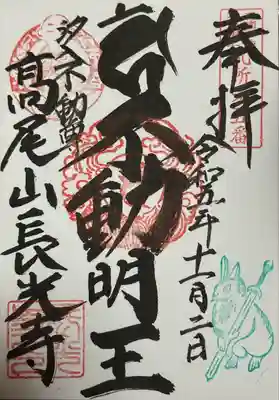 奉拝
令和五年十一月二日
不動明王
不動尊
髙尾山長光寺